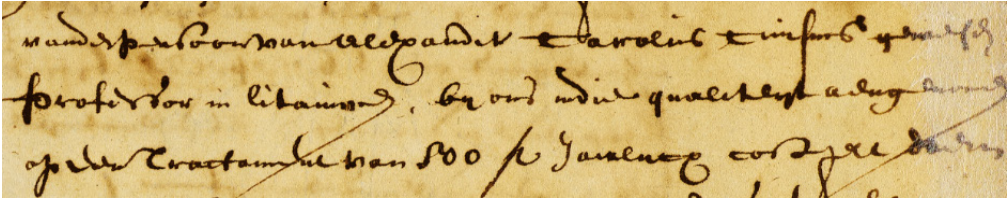 vande persoon van Alexander Carolus Curtius gewesen
professor in litauwen, by ons indie qualiteyt aeng
op een Tractament van 800 fl Jaerlycx